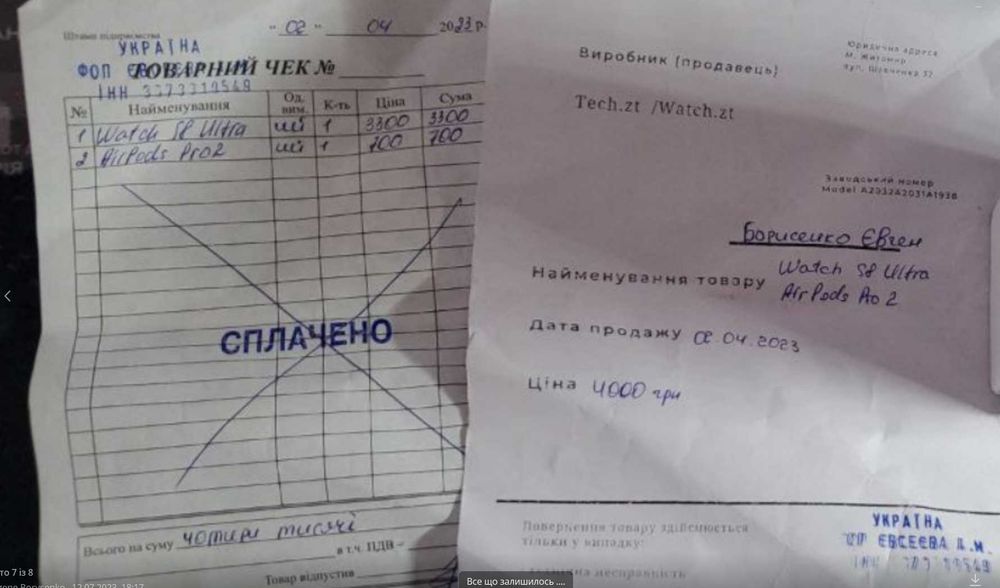 Штамп підприємства
"02" 04 2023 р.
УКРАЇНА
ФОП
ТОВАРНИЙ ЧЕК №
ІНН
№ Найменування Од. вим. К-ть Ціна Сума
1 Watch S8 Ultra шт 1 3300 3300
2 AirPods Pro2 шт 1 700 700
СПЛАЧЕНО
Всього на суму чотири тисячі
в т.ч. ПДВ –
Товар відпустив
Виробник (продавець)
Юридична адреса
м. Житомир
вул. Шевченка 37
Tech.zt /Watch.zt
Заводський номер
Model A2032A2031A1938
Борисенко Євген
Найменування товару Watch S8 Ultra
AirPods Pro 2
Дата продажу 02.04.2023
Ціна 4000 грн
Повернення товару здійснюється
тільки у випадку:
несправність
УКРАЇНА
ЕВСЕЕВА
ІНН
то 7 із 8
Borysenko 12.07.2023, 18:17
Все що залишилось ....